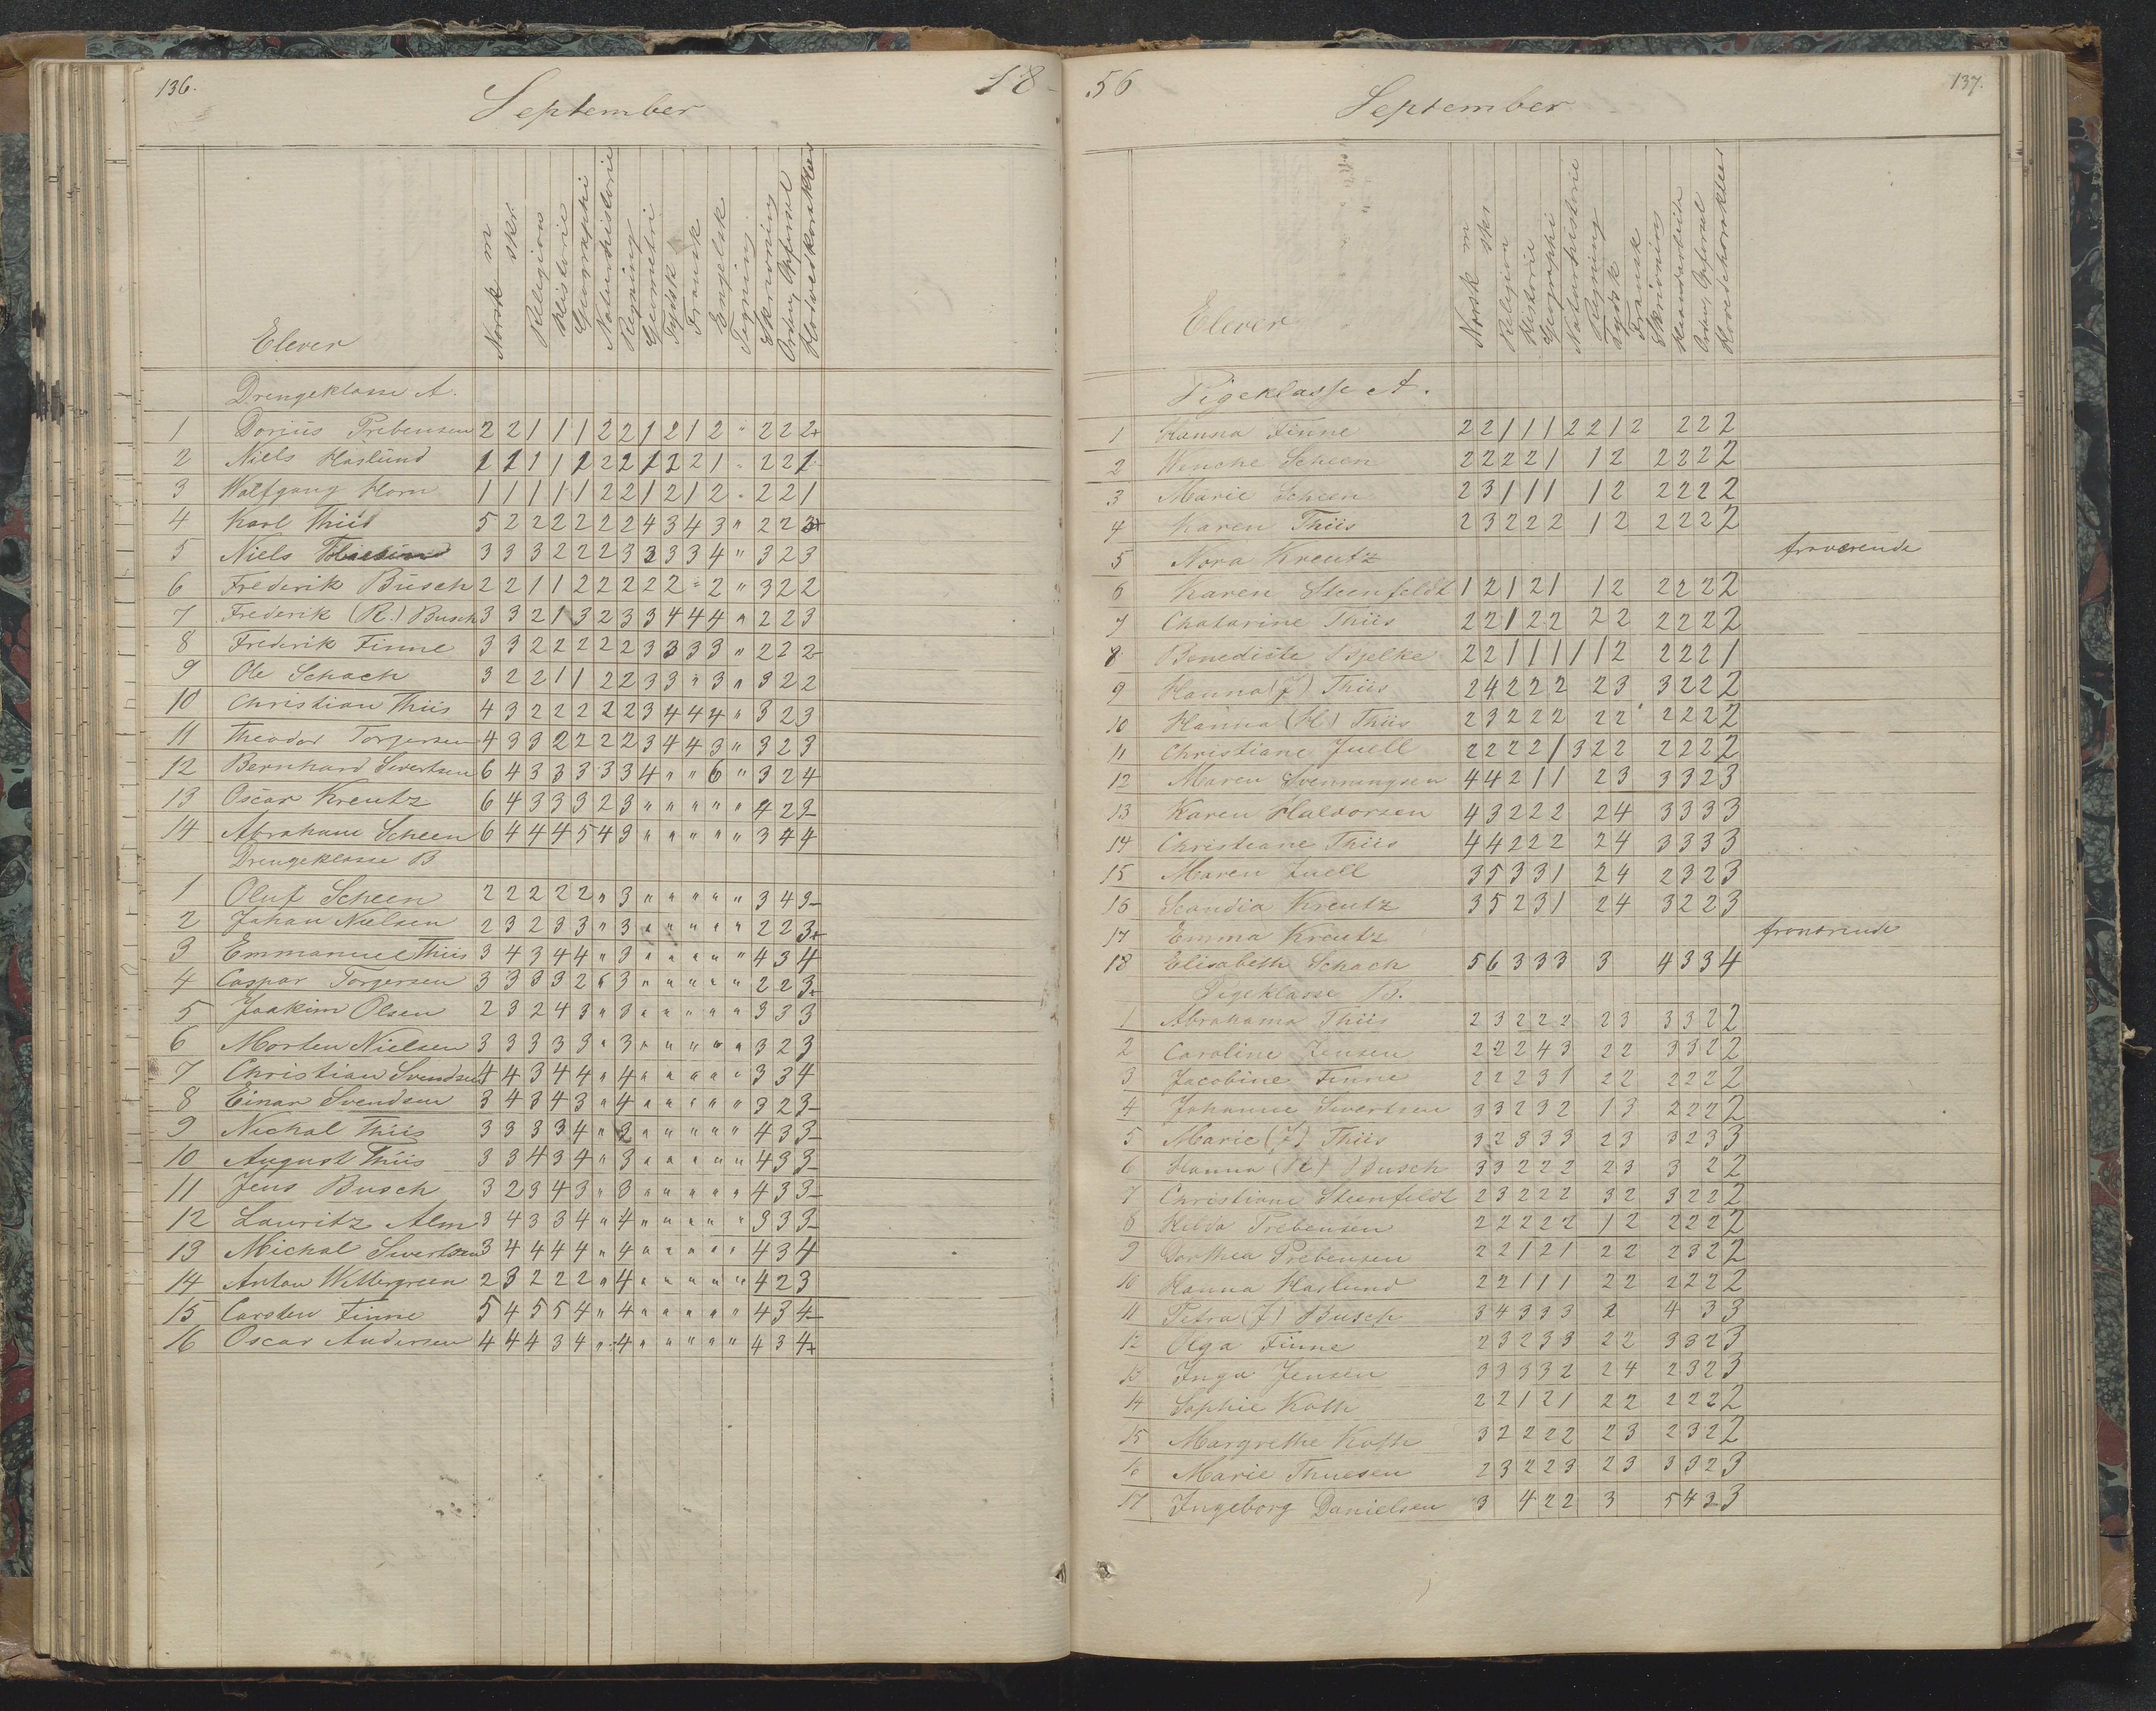 136.
18
September
Elever
Norsk m
skr.
Religion
Historie
Geographi
Naturhistorie
Regning
Geometri
Tydsk
Fransk
Engelsk
Tegning
Skrivning
Orden, Opførsel
Hovedkarakter
Drengeklasse A.
1 Dorius Prebensen 2 2 1 1 1 2 2 1 2 1 2 " 2 2 2+
2 Niels Haslund 1 1 1 1 1 2 2 2 1 2 2 1 " 2 2 1
3 Wolfgang Horn 1 1 1 1 1 2 2 1 2 1 2 " 2 2 1
4 Karl Thiis 5 2 2 2 2 2 2 4 3 4 3 " 2 2 3+
5 Niels 3 3 3 2 2 2 3 3 3 3 4 " 3 2 3
6 Frederik Busch 2 2 1 1 2 2 2 2 2 " 2 " 3 2 2
7 Frederik (R.) Busch 3 3 2 1 3 2 3 3 4 4 4 " 2 2 3
8 Frederik Finne 3 3 2 2 2 2 2 3 3 3 3 " 2 2 2-
9 Ole Schach 3 2 2 1 1 2 2 3 3 " 3 " 3 2 2
10 Christian Thiis 4 3 2 2 2 2 2 3 4 4 4 " 3 2 3
11 Theodor Torgersen 4 3 3 2 2 2 2 3 4 4 3 " 3 2 3
12 Bernhard Sivertsen 6 4 3 3 3 3 3 4 " " 6 " 3 2 4
13 Oscar Kreutz 6 4 3 3 3 2 3 " " " " " 4 2 3-
14 Abraham Scheen 6 4 4 4 4 5 4 3 " " " " " 3 4 4
Drengeklasse B
1 Oluf Scheen 2 2 2 2 2 " 3 " " " " " 3 4 3-
2 Johan Nielsen 2 3 2 3 3 " 3 " " " " " 2 2 3+
3 Emmanuel Thiis 3 4 3 4 4 " 3 " " " " " 4 3 4
4 Caspar Torgersen 3 3 3 3 2 " 3 " " " " " 2 2 3+
5 Joakim Olsen 2 3 2 4 3 " 3 " " " " " 3 3 3
6 Morten Nielsen 3 3 3 3 3 " 3 " " " " " 3 2 3
7 Christian Svendsen 4 4 3 4 4 " 4 " " " " " 3 3 4
8 Einar Svendsen 3 4 3 4 3 " 4 " " " " " 3 2 3-
9 Nichal Thiis 3 3 3 3 4 " 3 " " " " " 4 3 3-
10 August Thiis 3 3 4 3 4 " 3 " " " " " 4 3 3-
11 Jens Busch 3 2 3 4 3 " 3 " " " " " 4 3 3-
12 Lauritz Alm 3 4 3 3 4 " 4 " " " " " 3 3 3-
13 Michal Sivertsen 3 4 4 4 4 " 4 " " " " " 4 3 4
14 Anton Wettergreen 2 3 2 2 2 " 4 " " " " " 4 2 3
15 Carsten Finne 5 4 5 5 4 " 4 " " " " " 4 3 4-
16 Oscar Andersen 4 4 4 3 4 " 4 " " " " " 4 3 4+
56
137.
September
Elever
Norsk m
skr
Religion
Historie
Geographi
Naturhistorie
Regning
Tydsk
Fransk
Skrivning
Haandarbeide
Orden, Opførsel
Hovedkarakter
Pigeklasse A.
1 Hanna Finne 2 2 1 1 1 2 2 1 2 2 2 2
2 Wenche Scheen 2 2 2 2 1 1 2 2 2 2 2
3 Marie Scheen 2 3 1 1 1 1 2 2 2 2 2
4 Karen Thiis 2 3 2 2 2 1 2 2 2 2 2
5 Nora Kreutz fraværende
6 Karen Steenfeldt 1 2 1 2 1 1 2 2 2 2 2
7 Chatarine Thiis 2 2 1 2 2 2 2 2 2 2 2
8 Benedicte Bjelke 2 2 1 1 1 1 1 2 2 2 2 1
9 Hanna (J) Thiis 2 4 2 2 2 2 3 3 2 2 2
10 Hanna (H) Thiis 2 3 2 2 2 2 2 2 2 2 2
11 Christiane Juell 2 2 2 2 1 3 2 2 2 2 2 2
12 Maren Svenningsen 4 4 2 1 1 2 3 3 3 2 3
13 Karen Haldorsen 4 3 2 2 2 2 4 3 3 3 3
14 Christiane Thiis 4 4 2 2 2 2 4 3 3 3 3
15 Maren Juell 3 5 3 3 1 2 4 2 3 2 3
16 Scandia Kreutz 3 5 2 3 1 2 4 3 2 2 3
17 Emma Kreutz fraværende
18 Elisabeth Schach 5 6 3 3 3 3 4 3 3 4
Pigeklasse B.
1 Abrahama Thiis 2 3 2 2 2 2 3 3 3 2 2
2 Caroline Jensen 2 2 2 4 3 2 2 3 3 2 2
3 Jacobine Finne 2 2 2 3 1 2 2 2 2 2 2
4 Johanne Sivertsen 3 3 2 3 2 1 3 2 2 2 2
5 Marie (J) Thiis 3 2 3 3 3 2 3 3 2 3 3
6 Hanna (R) Busch 3 3 2 2 2 2 3 3 2 2
7 Christiane Steenfeldt 2 3 2 2 2 3 2 3 2 2 2
8 Hilda Prebensen 2 2 2 2 2 1 2 2 2 2 2
9 Dorthea Prebensen 2 2 1 2 1 2 2 2 3 2 2
10 Hanna Haslund 2 2 1 1 1 2 2 2 2 2 2
11 Petra (J) Busch 3 4 3 3 3 2 4 3 3
12 Olga Finne 2 3 2 3 3 2 2 3 3 2 3
13 Inga Jensen 3 3 3 3 2 2 4 2 3 2 3
14 Sophie Koth 2 2 1 2 1 2 2 2 2 2 2
15 Margrethe Koth 3 2 2 2 2 2 3 2 3 2 2
16 Marie Thuesen 2 3 2 2 3 2 3 3 3 2 3
17 Ingeborg Danielsen 3 4 2 2 3 5 4 3 3